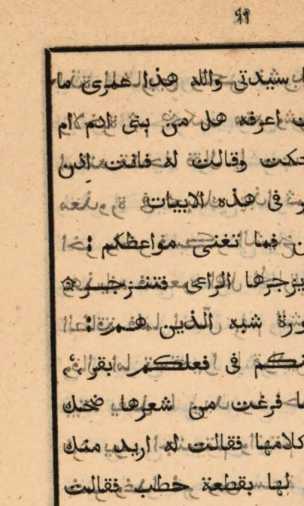 ٩٩
ستيدتى والله هذا عمرى ما
اعرفه هل من بنى ادم ام
حكت وقالت له فانت اذن
فى هذه الابيات
ن فما تغنى مواعظكم :
يزجرها الراعى فتنزجر
ورة شبه الذين هم :
نكم فى فعلكم بقر
ا فرغت من شعرها ضحك
كلامها فقالت له اريد منك
لها بقطعة حطب فقالت